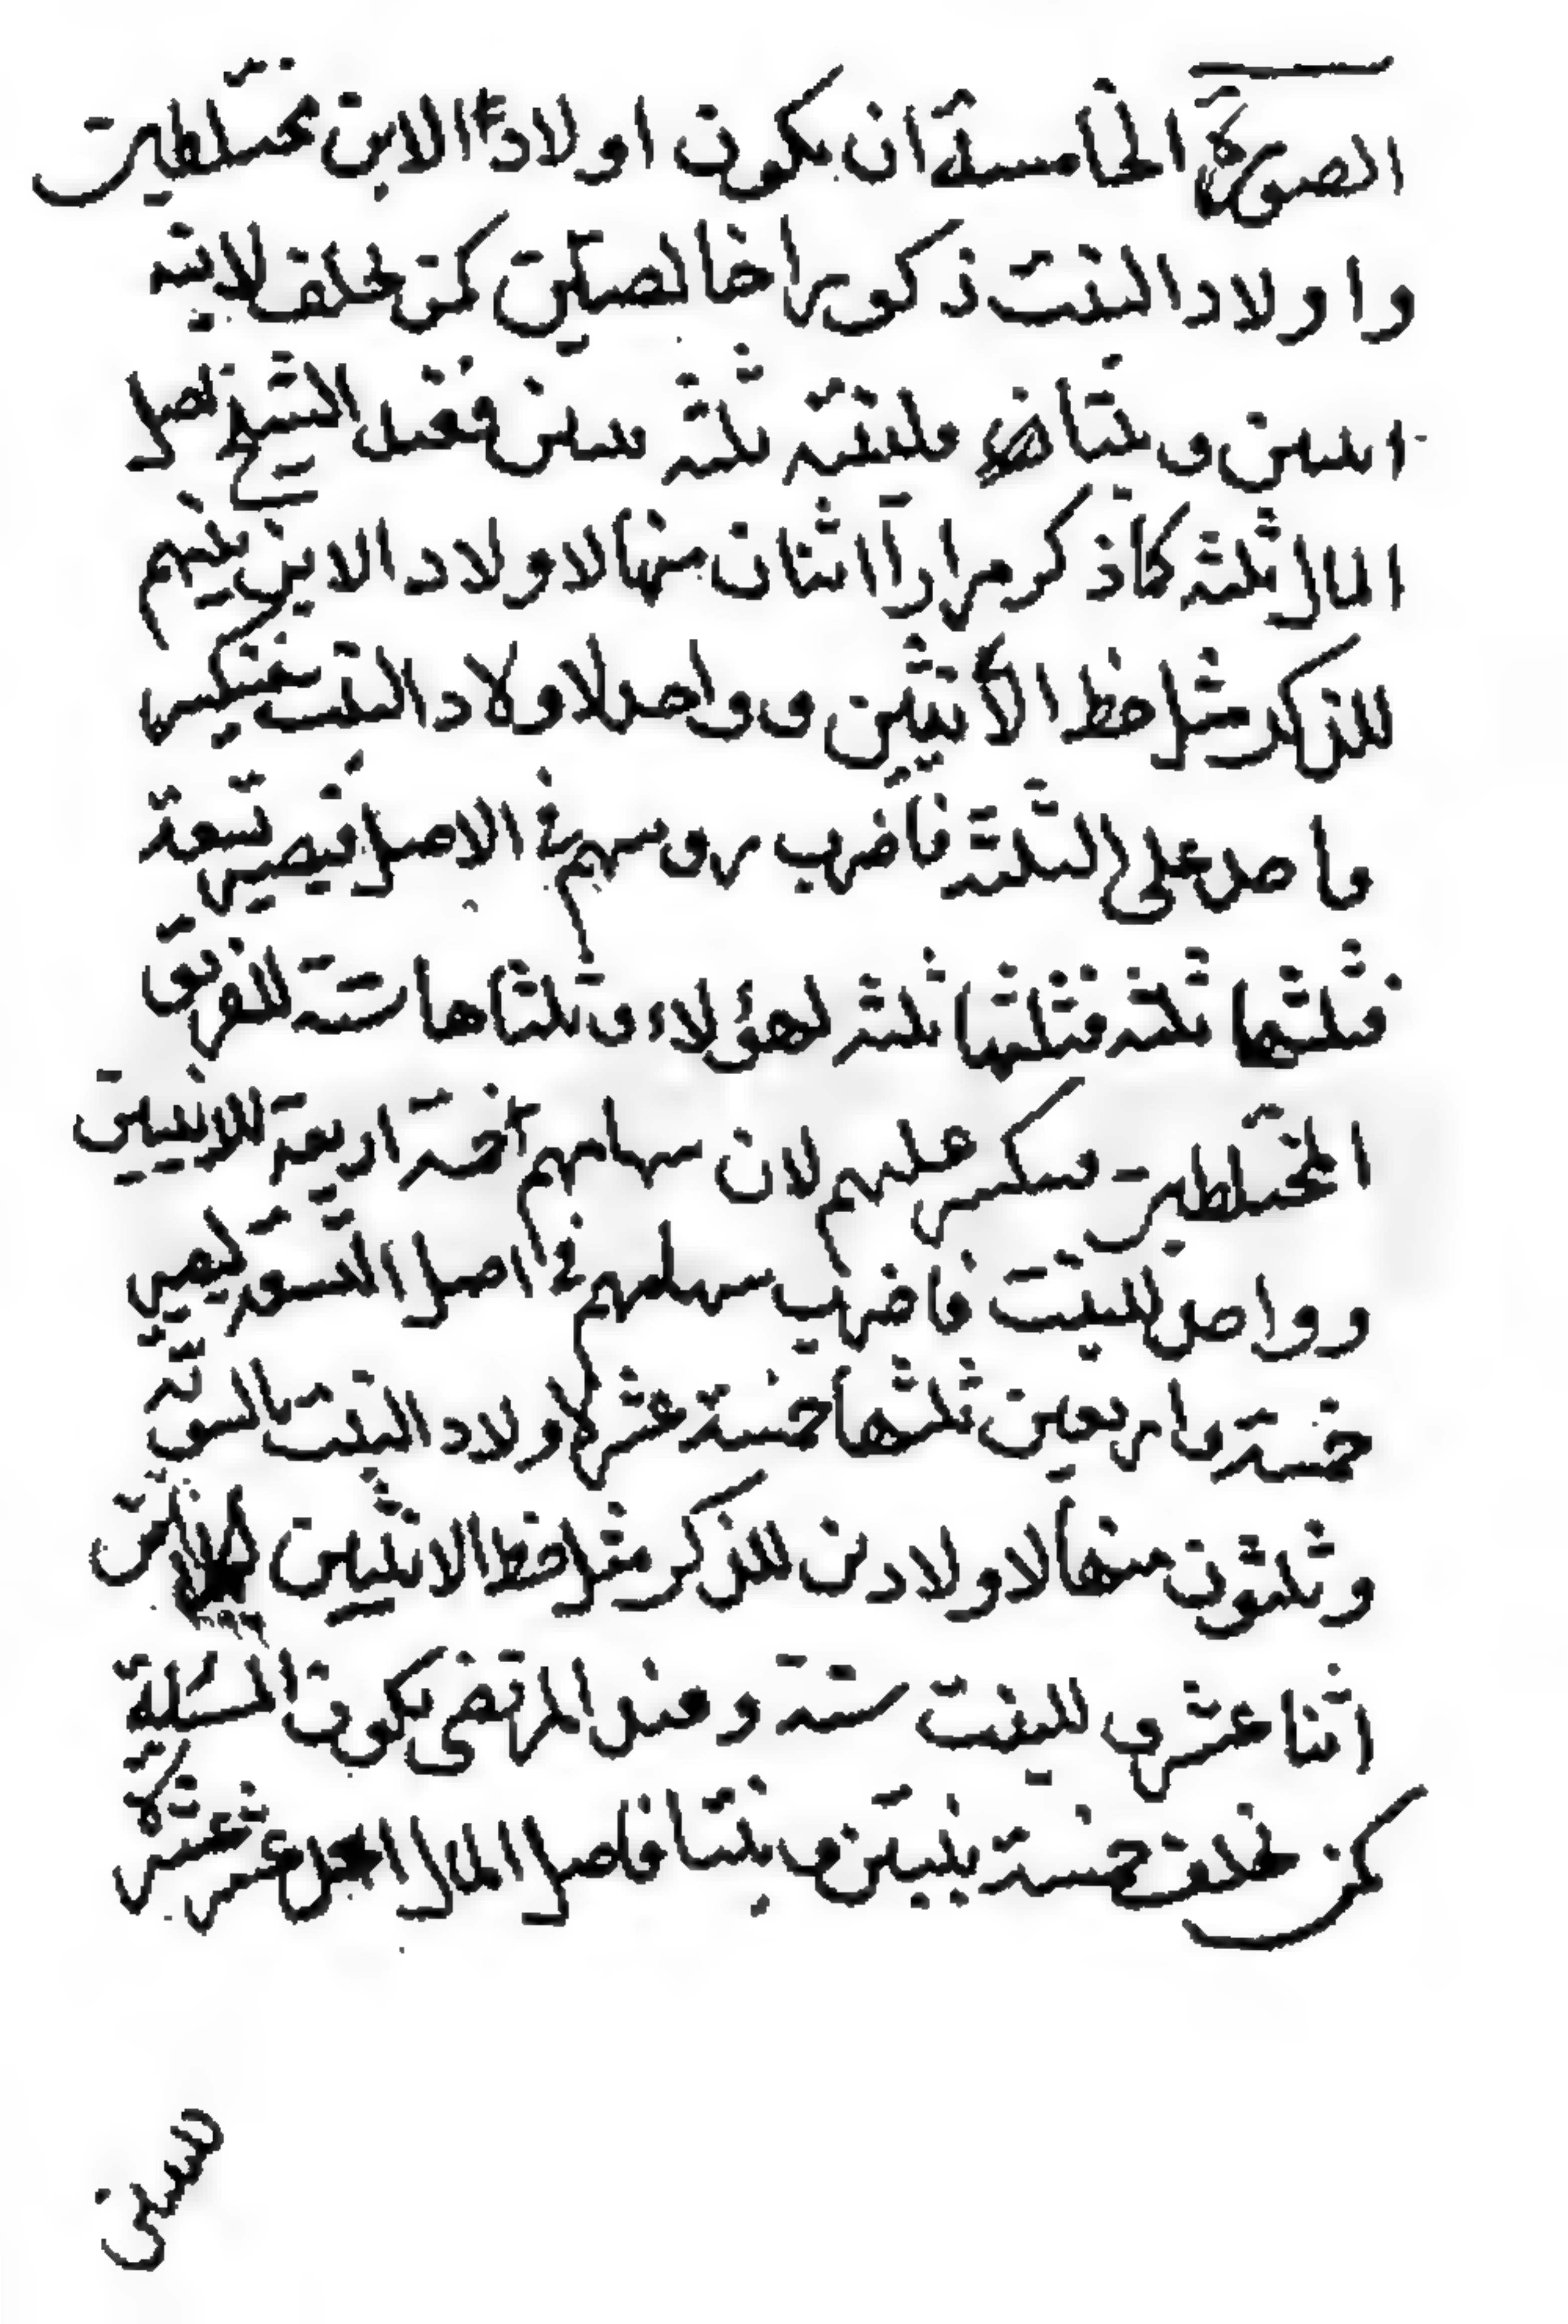 الصورة الخامسة ان يكون اولاد الابن مختلطين
واولاد البنت ذكورا خالصين كمن يخلف لابنه
ابنين وبنتا ولبنته ثلثة بنين فعند الشيخ اصل
المال ثلثة كما ذكر مرارا اثنان منها لاولاد الابن بينهم
للذكر مثل حظ الانثيين وواحد لاولاد البنت ينكسر
واحد على الثلثة فاضرب روسهم في الاصل فيصير تسعة
فثلثها ثلثة فثلثها ثلثة لهؤلاء وثلثاها ستة للفريق
المختلطين ينكسر عليهم لان سهامهم خمسة اربعة للابنين
وواحد للبنت فاضرب سهامهم في اصل التسعة ليصير
خمسة واربعين ثلثها خمسة عشر لاولاد البنت بالسوية
وثلثون منها لاولاد للذكر مثل حظ الانثيين
اثنا عشر وللبنت ستة وعند المرتضى يكون المسئلة
كمن يخلف خمسة بنين وبنتا فاصل المال احد عشر عشرة
بين